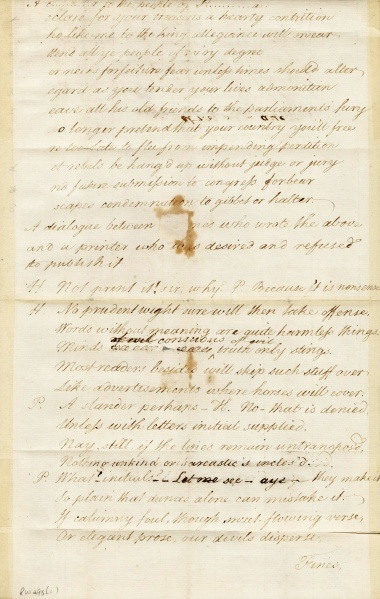 to the people of
colour for your
a hearty contrition
to the king allegiance will swear
ttend all ye people of every degree
or never forfeiture fear unless times should alter
egard as you tender your lives admonition
eave all his old friends to the parliaments fury
o longer pretend that your country you'll free
to flee from impending perdition
et rebels be hang'd up without judge or jury
no future submission to congress forbear
scapes condemnation to gibbet or halter.
A dialogue between who wrote the above
and a printer who was desired and refused
to publish it
H Not print it sir, why. P Because it is nonsense
H No prudent wight sure will then take offense.
Words without meaning are quite harmless things.
Minds conscious of evil truth only stings.
Most readers beside will skip such stuff over
Like advertisements where horses will cover.
P. A slander perhaps – H. No – that is denied,
Unless with letters initial supplied.
Nay, still if the lines remain untranspos'd,
Nothing unkind or sarcastic is inclos'd.
P What initials – Let me see – aye – they make it
So plain that dunces alone can mistake it.
If calumny foul, though smooth flowing verse,
Or elegant prose, our devils disperse,
Finis.